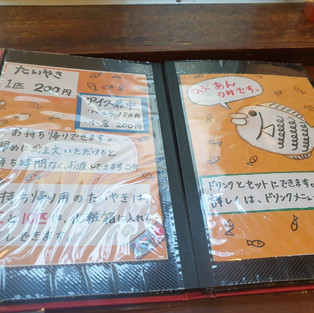 たいやき
1匹 200円
アイク
180円
小倉 200円
お持ち帰りできます。
早めにご注文いただけると
待ち時間なく、お渡しできます
持ち帰り用のたいやきは
と10匹は、化粧箱に入れ
できます。
つぶあん
のみです。
ドリンクとセットにできます。
詳しくは、ドリンクメニュー